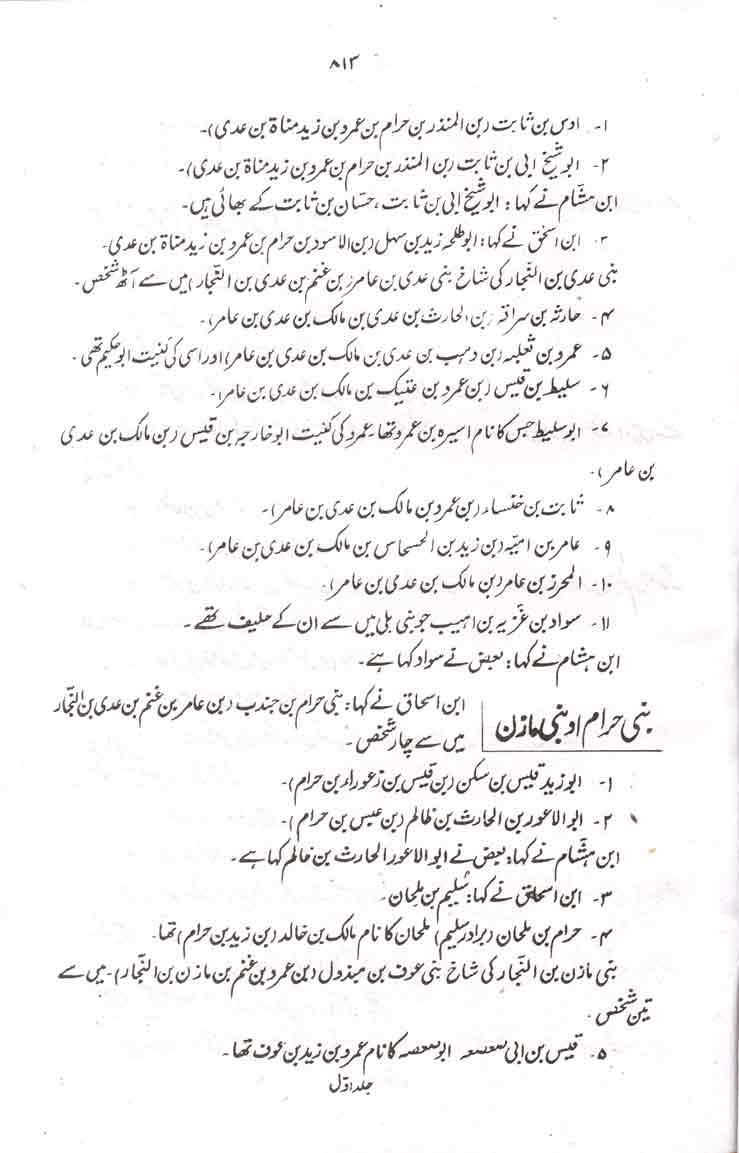 ۸۱۳
۱۔ اوس بن ثابت (بن المنذر بن حرام بن عمرو بن زید مناۃ بن عدی)۔
۲۔ ابو شیخ ابی بن ثابت (بن المنذر بن حرام بن عمرو بن زید مناۃ بن عدی)۔
ابن ہشّام نے کہا: ابو شیخ ابی بن ثابت، حسّان بن ثابت کے بھائی ہیں۔
۳۔ ابن اسحٰق نے کہا: ابو طلحہ زید بن سہل (بن الاسود بن حرام بن عمرو بن زید مناۃ بن عدی۔
بنی عدی بن النّجار کی شاخ بنی عدی بن عامر (بن غنم بن عدی بن النّجار) میں سے آٹھ شخص۔
۴۔ حارثہ بن سراقہ (بن الحارث بن عدی بن مالک بن عدی بن عامر)۔
۵۔ عمرو بن ثعلبہ (بن وہب بن عدی بن مالک بن عدی بن عامر) اور اسی کی کنیت ابو حکیم تھی۔
۶۔ سلیط بن قیس (بن عمرو بن عتیک بن مالک بن عدی بن عامر)۔
۷۔ ابو سلیط جس کا نام اسیرہ بن عمرو تھا۔ عمرو کی کنیت ابو خارجہ بن قیس (بن مالک بن عدی
بن عامر)۔
۸۔ ثابت بن خنساء (بن عمرو بن مالک بن عدی بن عامر)۔
۹۔ عامر بن امیّہ (بن زید بن الحسحاس بن مالک بن عدی بن عامر)۔
۱۰۔ المحرز بن عامر (بن مالک بن عدی بن عامر)۔
۱۱۔ سواد بن غزیہ بن اہیب جو بنی بلی میں سے ان کے حلیف تھے۔
ابن ہشام نے کہا: بعض نے سواد کہا ہے۔
بنی حرام او بنی مازن
ابن اسحاق نے کہا: بنی حرام بن جندب (بن عامر بن غنم بن عدی بن النّجار
میں سے چار شخص۔
۱۔ ابو زید قیس بن سکن (بن قیس بن زعوراء بن حرام)۔
۲۔ ابو الاعور بن الحارث بن ظالم (بن عبس بن حرام)۔
ابن ہشّام نے کہا: بعض نے ابو الاعور الحارث بن ظالم کہا ہے۔
۳۔ ابن اسحاق نے کہا: سُلیم بن ملحان۔
۴۔ حرام بن ملحان (برادر سلیم) ملحان کا نام مالک بن خالد (بن زید بن حرام) تھا۔
بنی مازن بن النّجار کی شاخ بنی عوف بن مبذول (بن عمرو بن غنم بن مازن بن النّجار)۔ میں سے
تین شخص۔
۵۔ قیس بن ابی صعصعہ ابو صعصہ کا نام عمرو بن زید بن عوف تھا۔
جلد اوّل